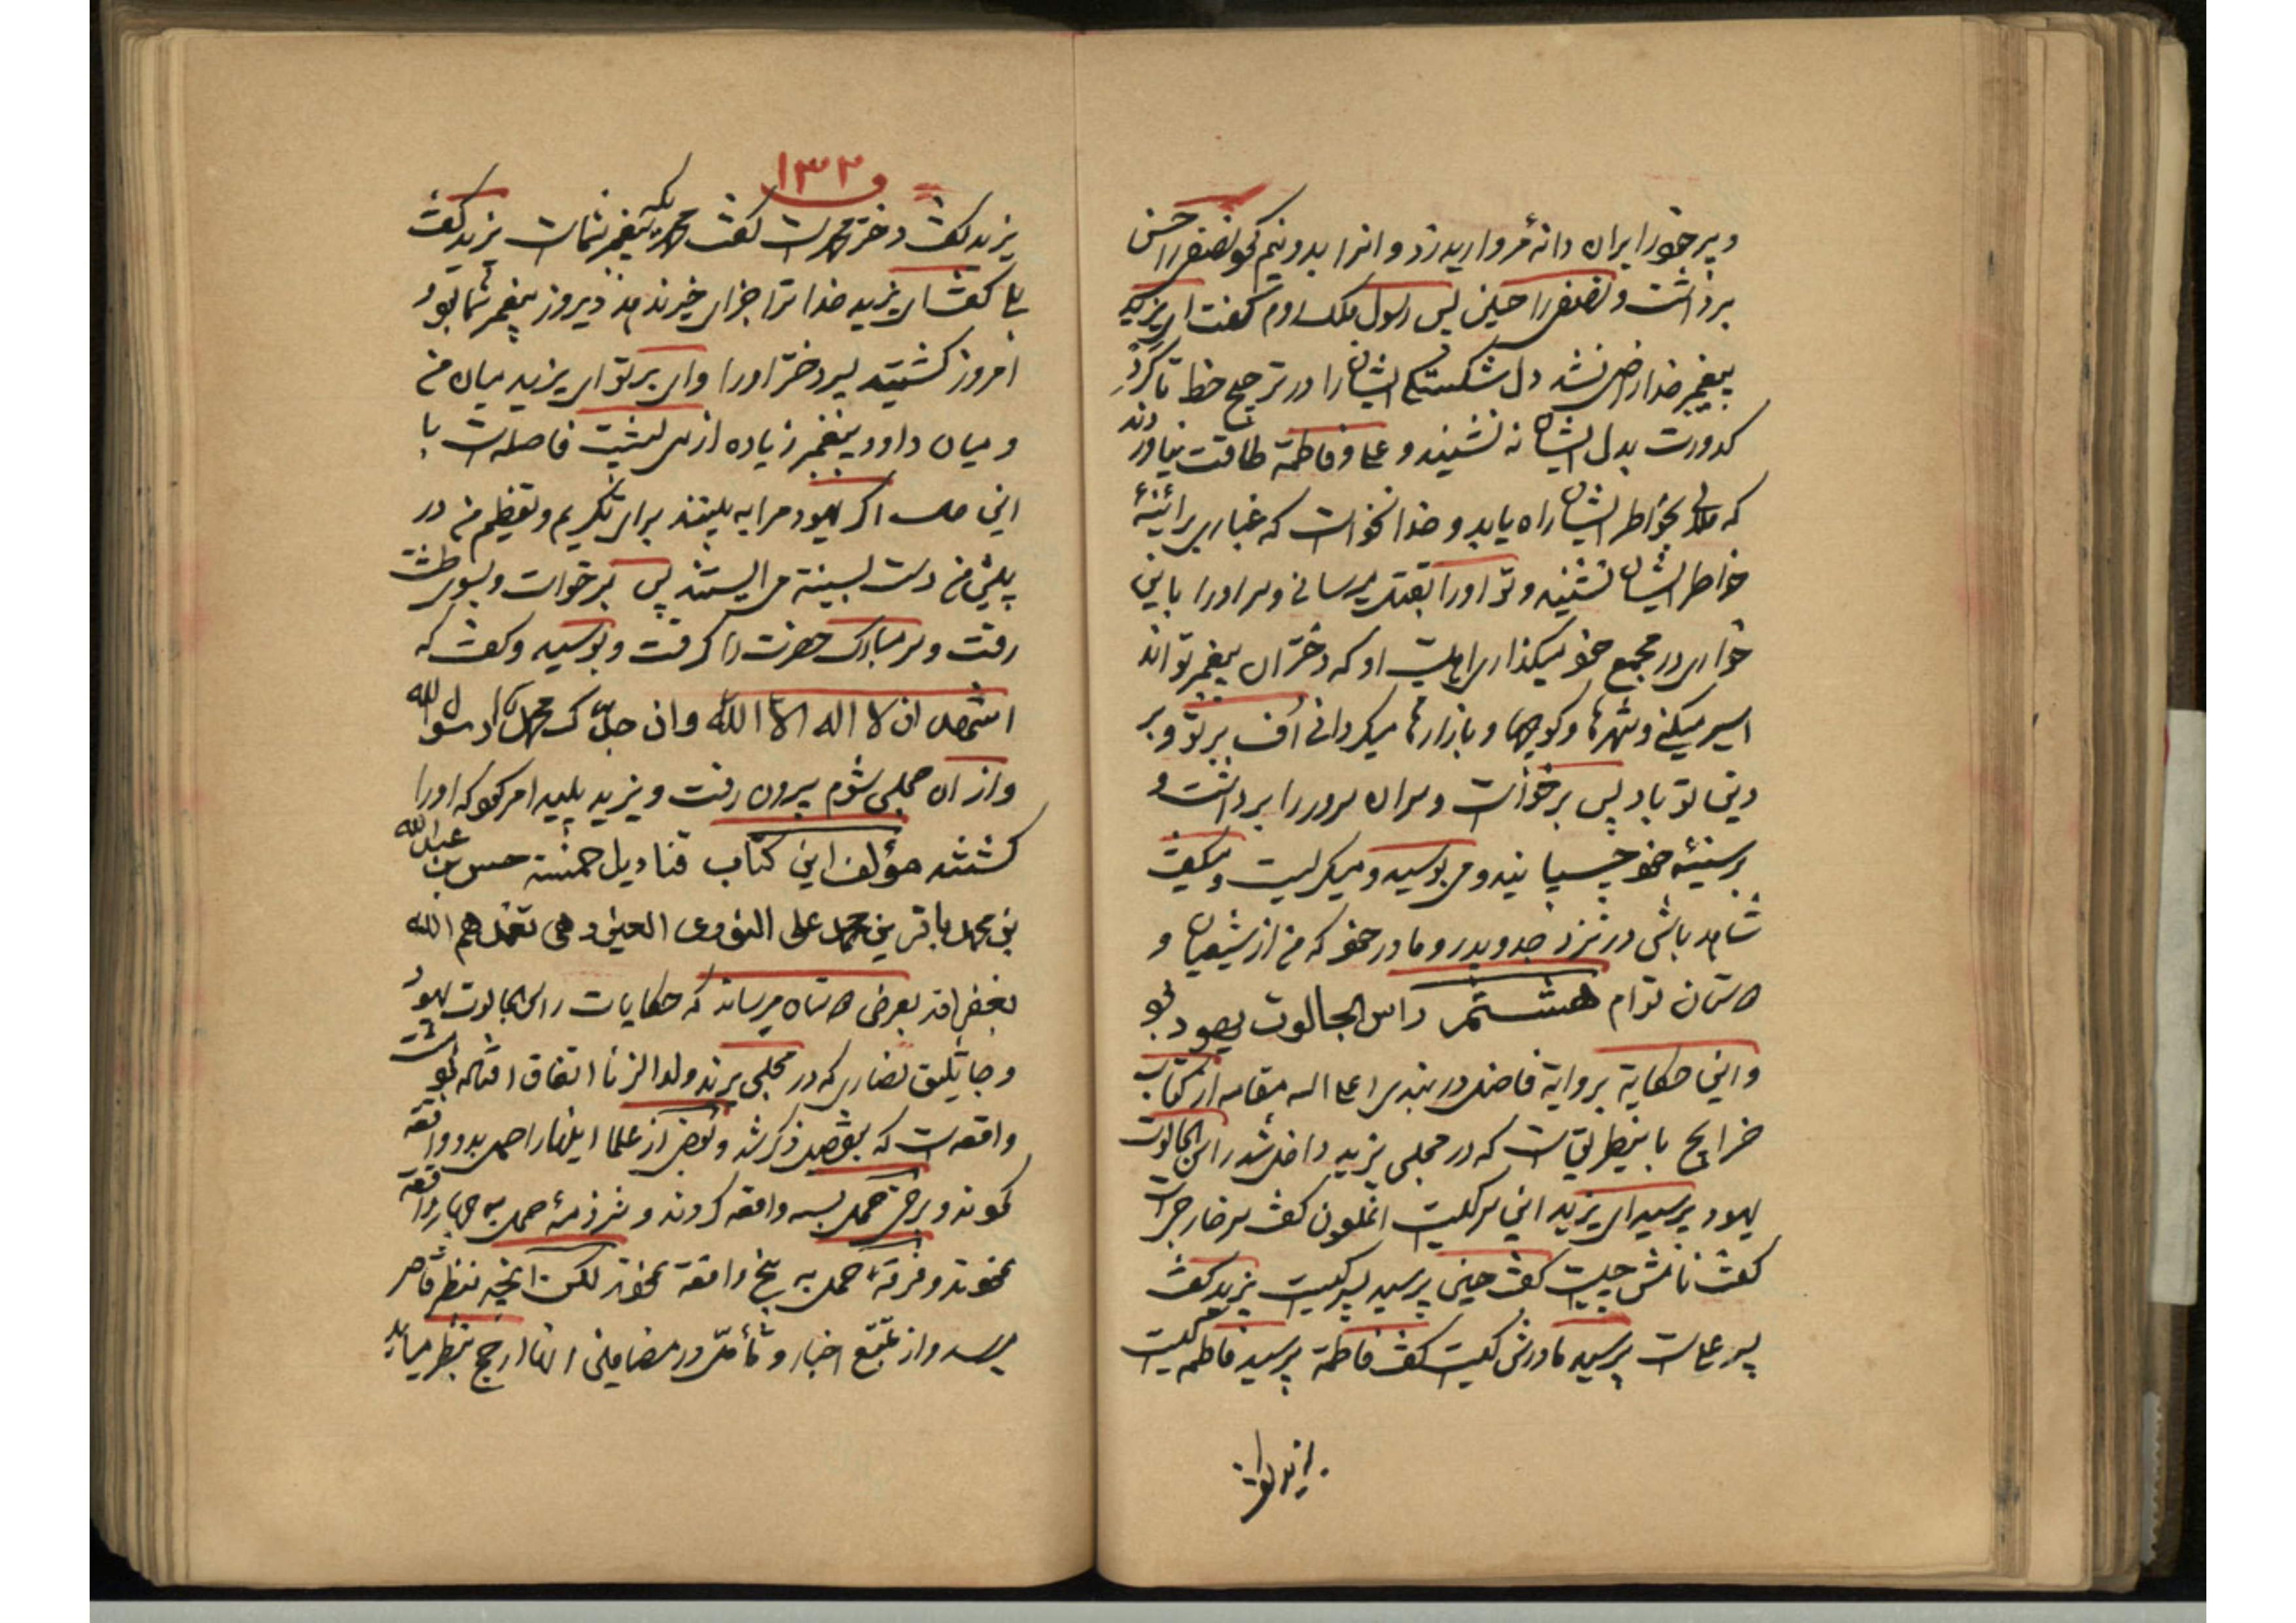 و پر خود را بران دانهٔ مروارید زد و انرا بدو نیم کرد نصفی را حسن
برداشت و نصفی را حسین پس رسول ملک روم گفت ای یزید
پیغمبر خدا راضی نشد دل شکستگی ایشان را در ترجیح خط تا گرد
کدورت بدل ایشان نه نشیند و علی و فاطمة طاقت نیاوردند
که ملالی بخواطر ایشان راه یابد و خدا نخواست که غباری بر ائینهٔ
خواطر ایشان نشیند و تو او را بقتل میرسانی و سر او را باین
خواری در مجمع خود میگذاری و اهلبیت او که دختران پیغمبر تواند
اسیر میکنی و شهرها و کوچها و بازارها میگردانی اُف بر تو و بر
دین تو باد پس برخواست و سر ان سرور را برداشت و
بر سینهٔ خود چسپانید و می بوسید و میگریست و میگفت
شاهد باشی در نزد جد و پدر و مادر خود که من از شیعیان و
دوستان توام هشتمر راس الجالوت یهود بود
و این حکایة بروایة فاضل دربندی اعلی الله مقامه از کتاب
خرایج باینطریق است که در مجلس یزید داخل شد راس الجالوت
یهود پرسید ای یزید این سر کیست انملعون گفت سر خارجی است
گفت نامش چیست گفت حسین پرسید پسر کیست یزید گفت
پسر علی است پرسید مادرش کیست گفت فاطمة پرسید فاطمه کیست
یزید گفت
و ۱۳۲
یزید گفت دختر محمد است گفت محمدیکه پیغمبر شماست یزید گفت
بلی گفت ای یزید خدا ترا جزای خیر ندهد دیروز پیغمبر شما بود
امروز کشتید پسر دختر او را وای بر تو ای یزید میان من
و میان داود پیغمبر زیاده از سی پشت فاصله است با
این حال اگر یهود مرا به بینند برای تکریم و تعظیم من در
پیش من دست بسینة می ایستند پس برخواست و بسوی طشت
رفت و سر مبارک حضرت را گرفت و بوسید و گفت که
اشهد ان لا اله الا الله وان جدّک محمداً رسول الله
و از ان مجلس شوم بیرون رفت و یزید پلید امر کرد که او را
کشتند مؤلف این کتاب قنادیل خمسه حسن بن عبد الله
بن محمد باقر بن محمد علی تغمدهم الله
بغفرانه بعرض دوستان میرساند که حکایات راس الجالوت یهود
و جاثلیق نصاری که در مجلس یزید ولد الزنا اتفاق افتاده بود
واقعه است که بتفصیل ذکر شد و بعضی از علما اینها را حمل بدو واقعه
نمودند و برخی حمل بسه واقعه کردند و شرذمهٔ حمل به چهار واقعه
نمودند و فرقهٔ حمل به پنج واقعة نمودند لکن انچه بنظر قاصر
میرسد و از تتبّع اخبار و تأمّل در مضامین انها ارجح بنظر میاید